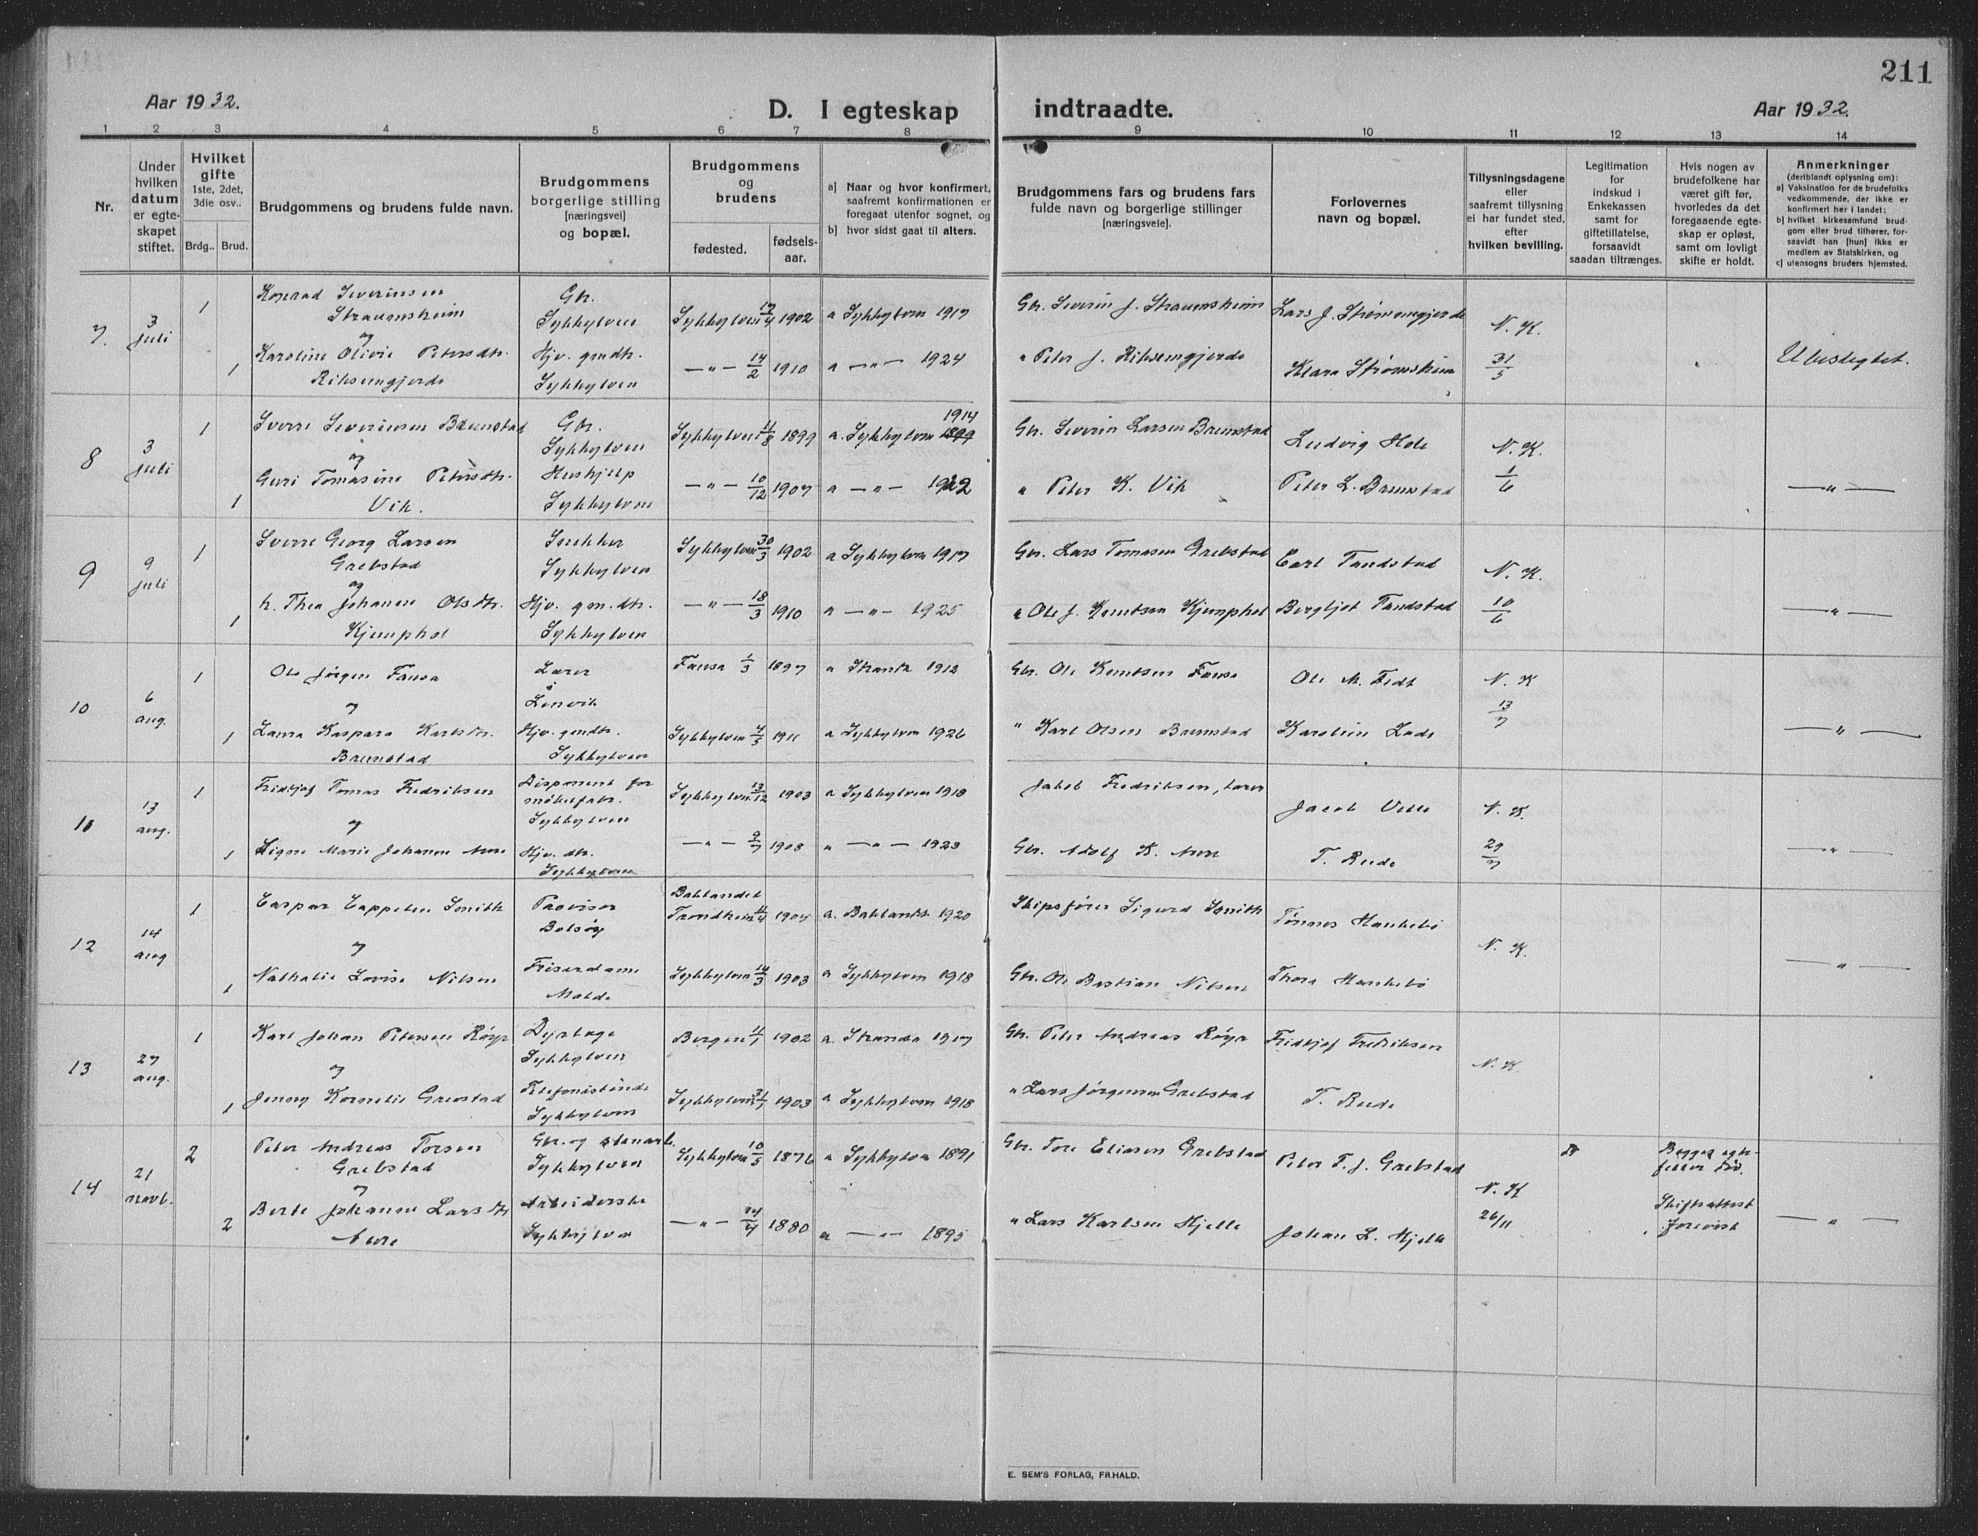 211
Aar 1932.
D. I egteskap indtraadte.
Aar 1932.
1 2 3 4 5 6 7 8 9 10 11 12 13 14
Nr.
Under hvilken datum er egte- skapet stiftet.
Hvilket gifte 1ste, 2det, 3die osv..
Brdg.. Brud.
Brudgommens og brudens fulde navn.
Brudgommens borgerlige stilling [næringsvei] og bopæl.
Brudgommens og brudens
fødested.
fødsels- aar.
a] Naar og hvor konfirmert, saafremt konfirmationen er foregaat utenfor sognet, og
b] hvor sidst gaat til alters.
Brudgommens fars og brudens fars fulde navn og borgerlige stillinger [næringsveie].
Forlovernes navn og bopæl.
Tillysningsdagene eller saafremt tillysning ei har fundet sted, efter hvilken bevilling.
Legitimation for indskud i Enkekassen samt for giftetillatelse, forsaavidt saadan tiltrænges.
Hvis nogen av brudefolkene har været gift før, hvorledes da det foregaaende egte- skap er opløst, samt om lovligt skifte er holdt.
Anmerkninger (deriblandt oplysning om): a] Vaksination for de brudefolks vedkommende, der ikke er konfirmert her i landet; b] hvilket kirkesamfund brud- gom eller brud tilhører, for- saavidt han [hun] ikke er medlem av Statskirken, og c] utensogns bruders hjemsted.
7. 3 juli 1 Konrad Severinsen Straumsheim Gbr. Sykkylven Sykkylven 1902 a Sykkylven 1917 Gbr. Severin J. Straumsheim Lars J. Strømmegjerde N. K. 31/5
og
1 Karoline Olivie Petersdtr. Riksemgjerde Hjv. gmdtr. Sykkylven —"— 14/2 1910 a —"— 1924 " Peter J. Riksemgjerde Klara Strømsheim Ubeslegtet.
8 3 juli 1 Sverre Severinsen Brunstad Gbr. Sykkylven Sykkylven 11/8 1899 a. Sykkylven 1914 Gbr. Severin Larsen Brunstad Ludvig Hole N. K. 1/6
og
1 Guri Tomasine Petersdtr. Vik. Hushjelp Sykkylven —"— 10/12 1907 a —"— 1922 " Peter K. Vik Peter L. Brunstad —"—
9 9 juli 1 Sverre Georg Larsen Grebstad Snekker Sykkylven Sykkylven 30/3 1902 a Sykkylven 1917 Gbr. Lars Tomasen Grebstad Carl Tandstad N. K. 10/6
og
1 Thea Johanne Olsdtr. Kjemphol Hjv. gm.dtr. Sykkylven —"— 18/3 1910 a —"— 1925 " Ole J. Knutsen Kjemphol Bergljot Tandstad —"—
10 6 aug. 1 Ole Jørgen Fausa Lærer Lenvik Fausa 1/3 1897 a Stranda 1912 Gbr. Ole Knutsen Fausa Ole M. Fedt N. K 13/7
og
1 Laura Kaspara Karlsdtr. Brunstad Hjv. gmdtr. Sykkylven Sykkylven 4/5 1911 a Sykkylven 1926 " Karl Olsen Brunstad Karoline Lade —"—
11 13 aug. 1 Fridtjof Tomas Fredriksen Disponent for møbelfabr. Sykkylven Sykkylven 13/12 1903 a Sykkylven 1918 Jakob Fredriksen, lærer Jacob Velle N. K. 29/7
og
1 Signe Marie Johanne Aure Hjv. dtr. Sykkylven —"— 9/7 1908 a —"— 1923 Gbr. Adolf K. Aure T. Rude —"—
12 14 aug 1 Caspar Cappelen Smith Provisor Bolsøy Baklandet Trondheim 11/4 1904 a. Baklandet 1920 Skipsfører Sigurd Smith Tønnes Haukebø N. K.
og
1 Nathalie Lovise Nilsen Friserdame Molde Sykkylven 14/3 1903 a Sykkylven 1918 Gbr. Ole Bastian Nilsen Thora Haukebø —"—
13 27 aug. 1 Karl Johan Petersen Røyr Dyrlæge Sykkylven Bergen 11/1 1902 a. Stranda 1917 Gbr. Peter Andreas Røyr Fridtjof Fredriksen N. K.
og
1 Jenny Kornelie Grebstad Telefonistinde Sykkylven Sykkylven 1903 a Sykkylven 1918 " Lars Jørgensen Grebstad T. Rude
14 21 novb. 2 Peter Andreas Torsen Grebstad Gbr. og stenarb. Sykkylven Sykkylven 10/5 1876 a Sykkylven 1891 Gbr. Tore Eliasen Grebstad Peter T. J. Grebstad N. K 26/11 Begges egte- feller død. Skifteattest forevist
og
2 Berte Johanne Larsdtr Aure Arbeiderske Sykkylven —"— 1880 a —"— 1895 " Lars Karlsen Hjelle Johan L. Hjelle —"—
E. SEM'S FORLAG, FR.HALD.